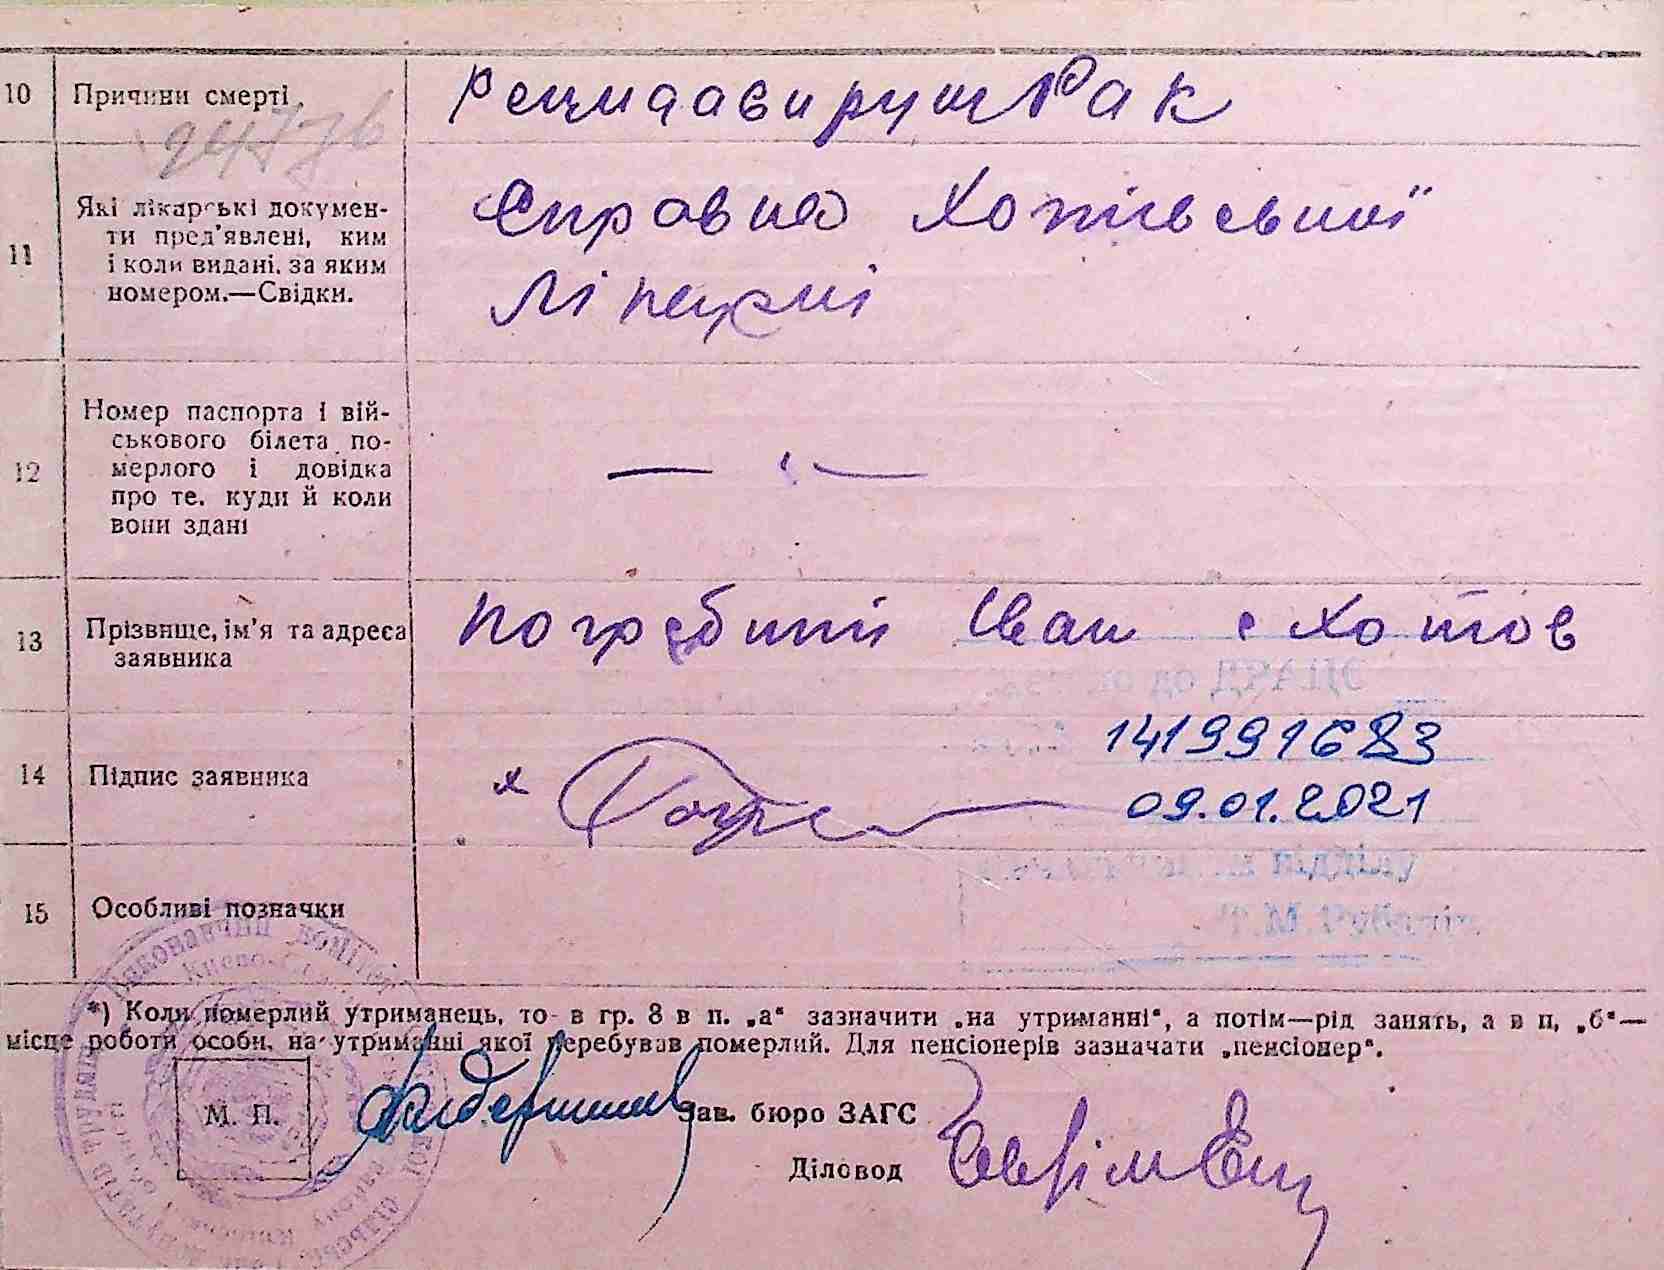 10 Причини смерті. Рак
24776
11 Які лікарські докумен-
ти пред'явлені, ким
і коли видані, за яким
номером.—Свідки.
Справка Хотівської
Лікарні
12 Номер паспорта і вій-
ськового білета по-
мерлого і довідка
про те, куди й коли
вони здані
— " —
13 Прізвище, ім'я та адреса
заявника
Погребний Іван с Хотов
до ДРАЦС
14 Підпис заявника х Погре
141991683
09.01.2021
відділу
Т.М.
15 Особливі позначки
*) Коли померлий утриманець, то в гр. 8 в п. „а“ зазначити „на утриманні“, а потім—рід занять, а в п. „б“—
місце роботи особи, на утриманні якої перебував померлий. Для пенсіонерів зазначати „пенсіонер“.
Виконавчий комітет
М. П.
Зав. бюро ЗАГС
Діловод